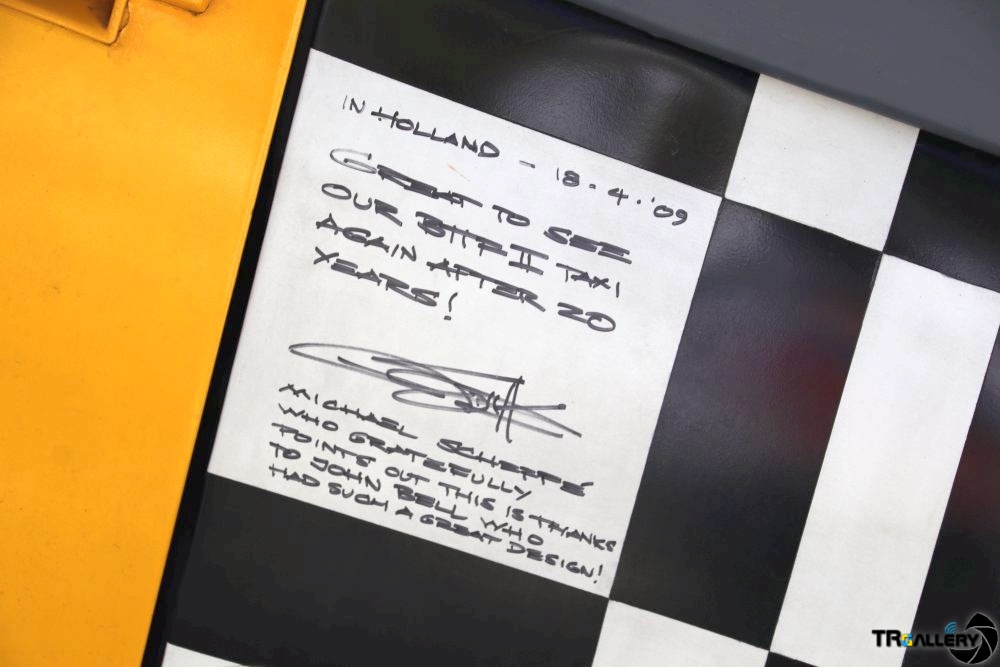 IN HOLLAND - 18.4.'09
GREAT TO SEE
OUR BTTF II TAXI
AGAIN AFTER 20
YEARS!
MICHAEL SCHEFFE
WHO GRATEFULLY
POINTS OUT THIS IS THANKS
TO JOHN BELL WHO
HAD SUCH A GREAT DESIGN!
TRGALLERY